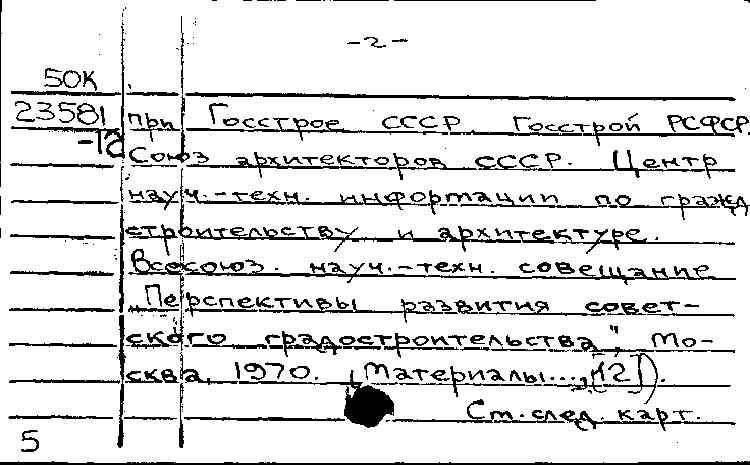 -2-
50К
23581
-12
при Госстрое СССР. Госстрой РСФСР.
Союз архитекторов СССР. Центр
науч.-техн. информации по гражд
строительству и архитектуре.
Всесоюз. науч.-техн. совещание
"Перспективы развития совет-
ского градостроительства", Мо-
сква, 1970. (Материалы..., [12]).
См. след. карт.
5